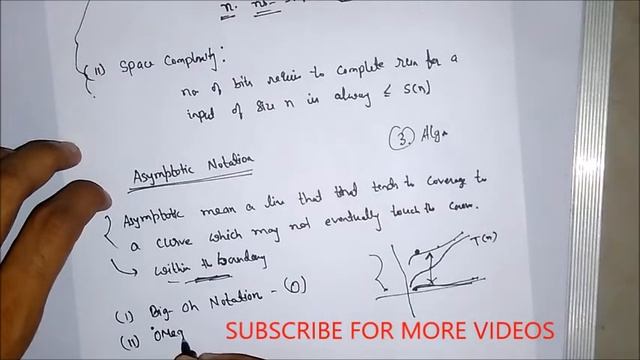 n.
(II) Space Complexity:
no of bits require to complete run for a
input of size n is alway ≤ S(n)
(3.) Algo
Asymptotic Notation
Asymptotic mean a line that tend tends to coverage to
a curve which may not eventually touch the curve.
within the boundary
T(n)
(I) Big-Oh Notation - (O)
(II) Omeg
SUBSCRIBE FOR MORE VIDEOS